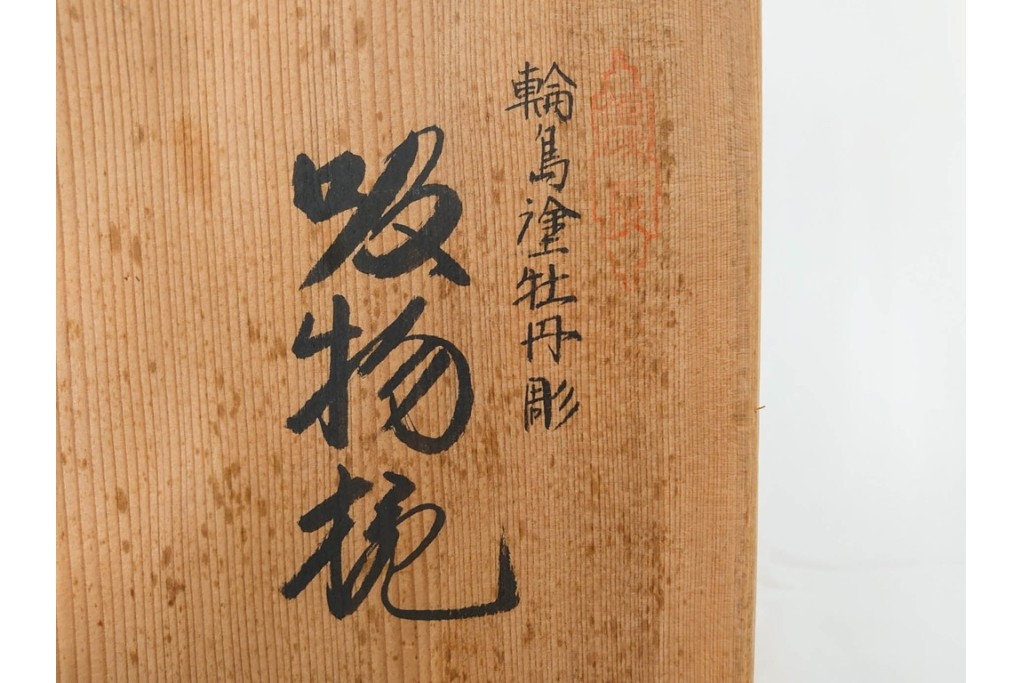 輪島塗牡丹彫
吸物椀